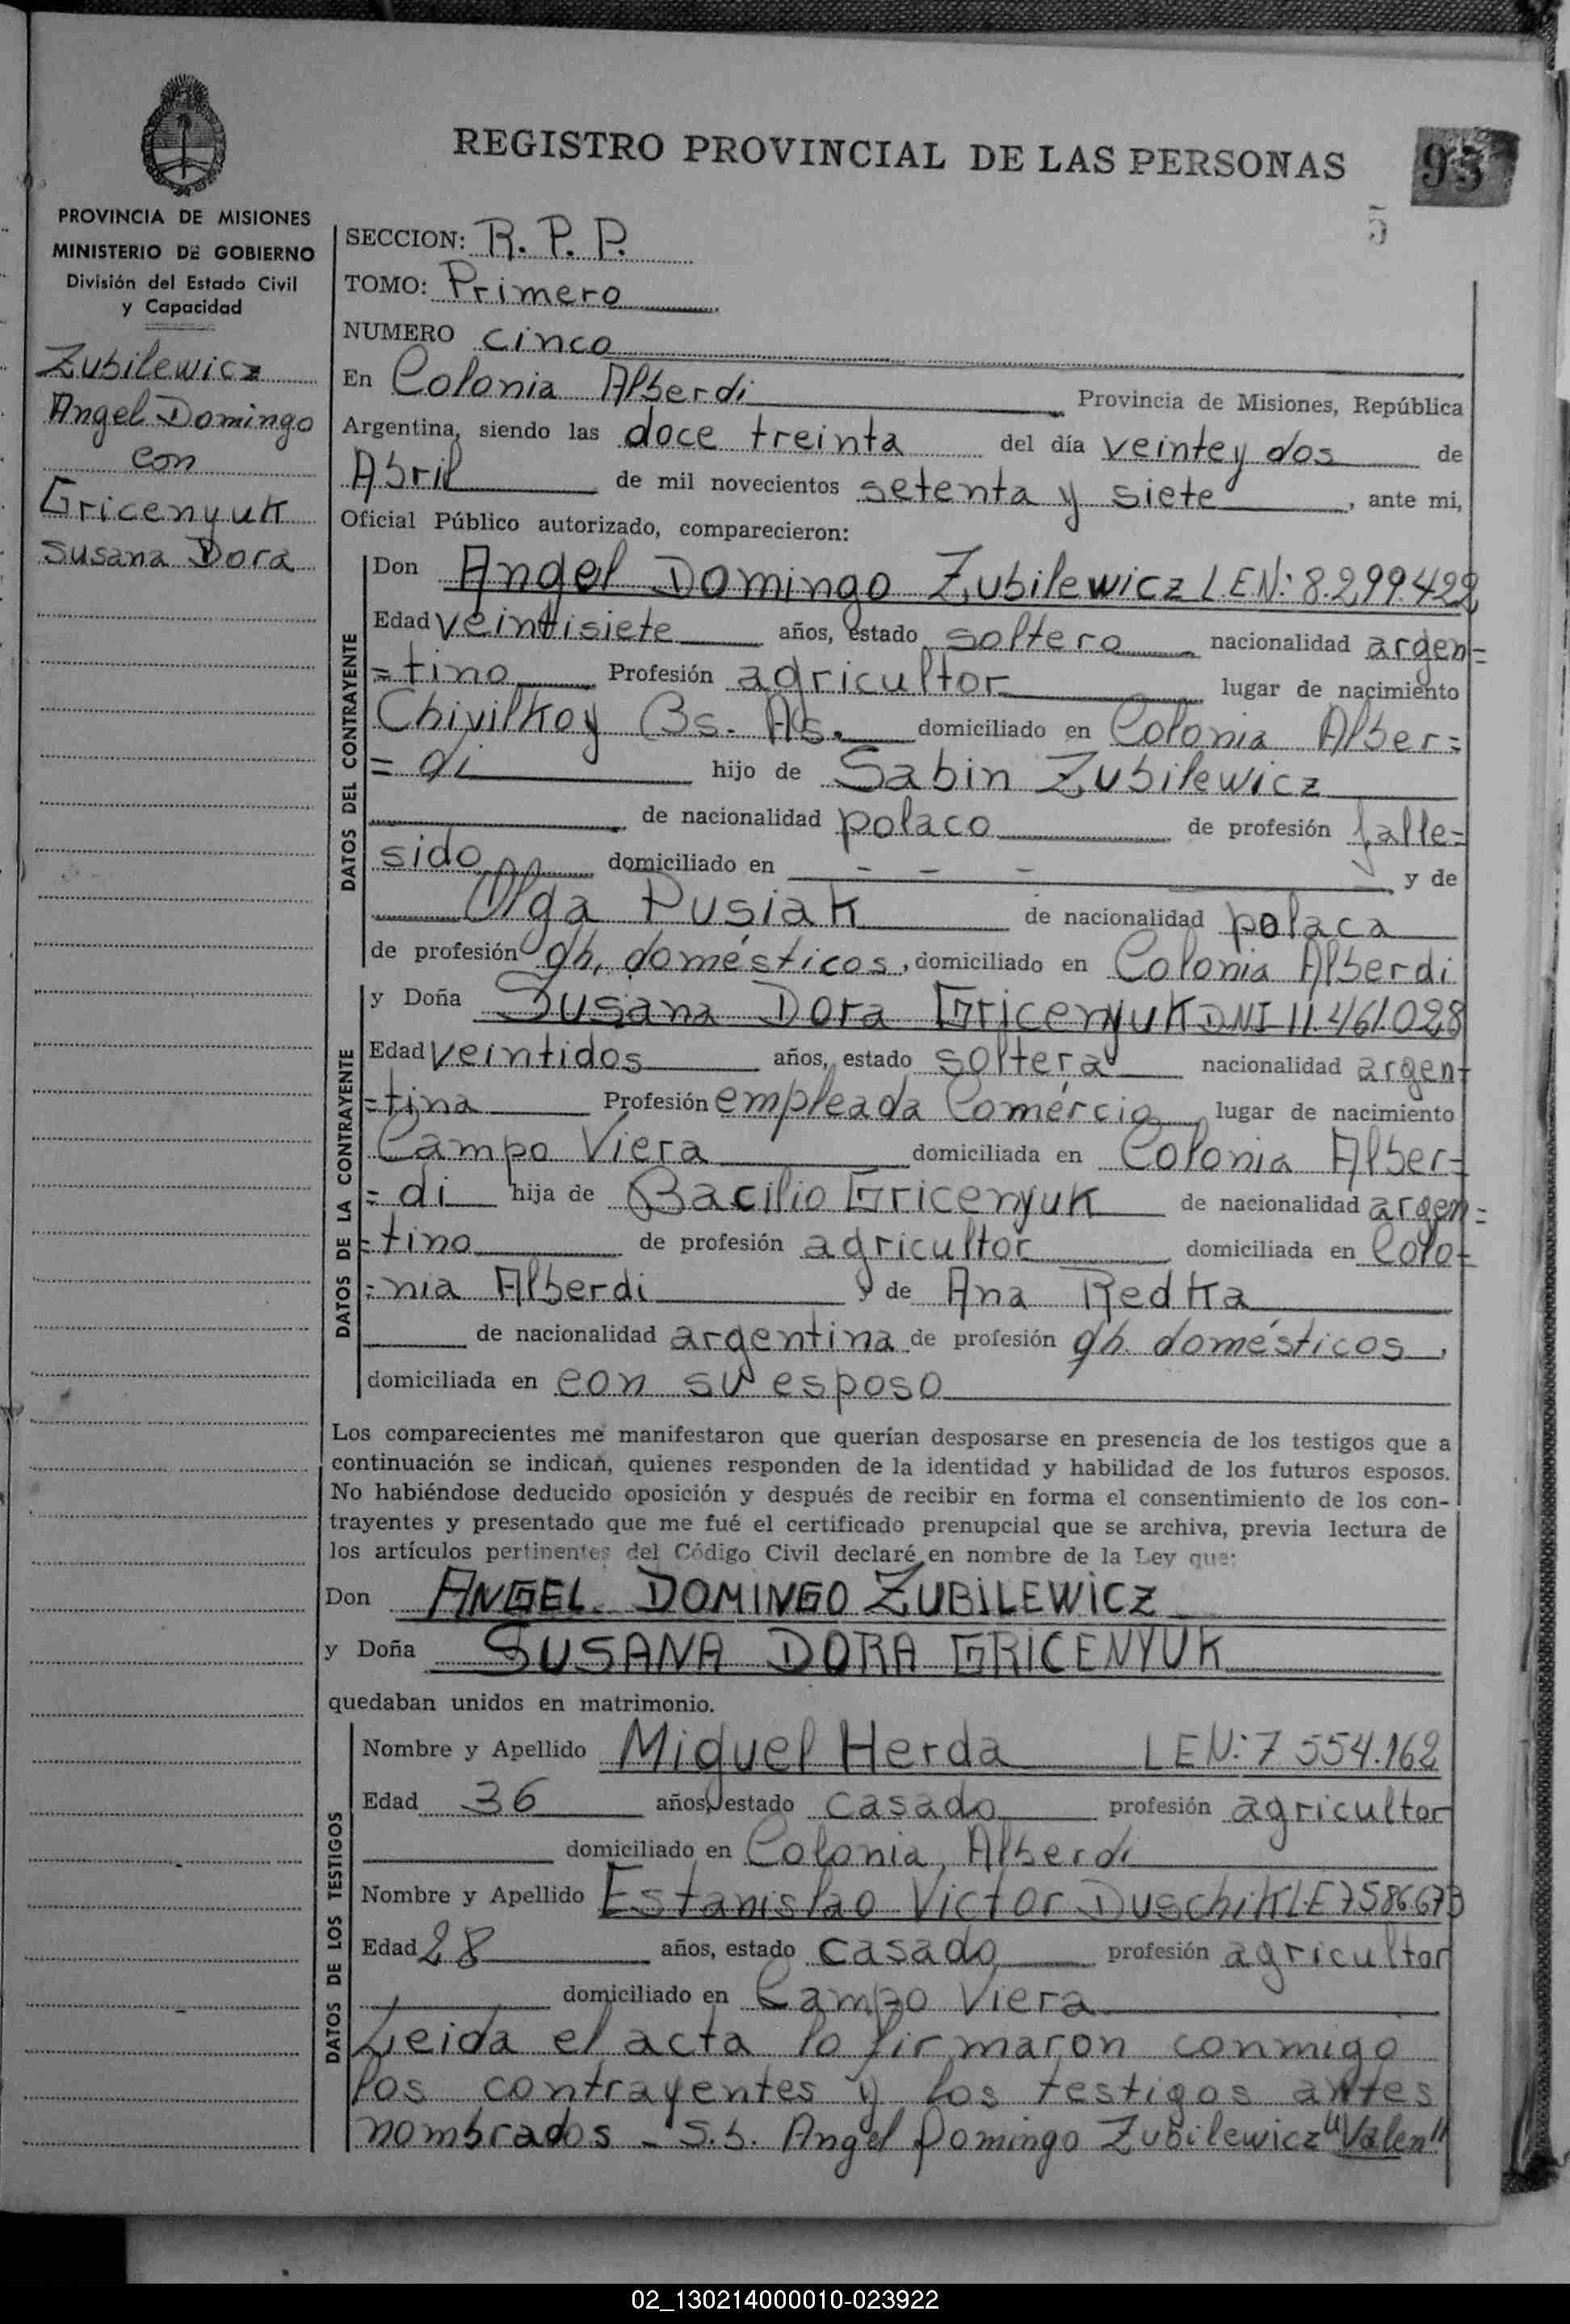 REGISTRO PROVINCIAL DE LAS PERSONAS
95
5
PROVINCIA DE MISIONES
MINISTERIO DE GOBIERNO
División del Estado Civil
y Capacidad
Zubilewicz
Angel Domingo
con
Gricenyuk
Susana Dora
SECCION: R. P. P.
TOMO: Primero
NUMERO cinco
En Colonia Alberdi Provincia de Misiones, República
Argentina, siendo las doce treinta del día veinte y dos de
Abril de mil novecientos setenta y siete, ante mi,
Oficial Público autorizado, comparecieron:
DATOS DEL CONTRAYENTE
Don Angel Domingo Zubilewicz L.E.N: 8.299.422
Edad veintisiete años, estado soltero nacionalidad argen=
=tino Profesión agricultor lugar de nacimiento
Chivilkoy Bs. As. domiciliado en Colonia Alber=
= di hijo de Sabin Zubilewicz
de nacionalidad polaco de profesión falle=
sido domiciliado en - - - y de
Olga Pusiak de nacionalidad polaca
de profesión qh. domésticos, domiciliado en Colonia Alberdi
DATOS DE LA CONTRAYENTE
y Doña Susana Dora Gricenyuk DNI 11.461.028
Edad veintidos años, estado soltera nacionalidad argen=
=tina Profesión empleada Comercio lugar de nacimiento
Campo Viera domiciliada en Colonia Alber=
= di hija de Bacilio Gricenyuk de nacionalidad argen=
=tino de profesión agricultor domiciliada en Colo=
=nia Alberdi y de Ana Redka
de nacionalidad argentina de profesión qh. domésticos,
domiciliada en con su esposo
Los comparecientes me manifestaron que querían desposarse en presencia de los testigos que a
continuación se indican, quienes responden de la identidad y habilidad de los futuros esposos.
No habiéndose deducido oposición y después de recibir en forma el consentimiento de los con-
trayentes y presentado que me fué el certificado prenupcial que se archiva, previa lectura de
los artículos pertinentes del Código Civil declaré en nombre de la Ley que:
Don ANGEL DOMINGO ZUBILEWICZ
y Doña SUSANA DORA GRICENYUK
quedaban unidos en matrimonio.
DATOS DE LOS TESTIGOS
Nombre y Apellido Miguel Herda L E N: 7 554.162
Edad 36 años, estado casado profesión agricultor
domiciliado en Colonia Alberdi
Nombre y Apellido Estanislao Victor Duschik L.E 7586673
Edad 28 años, estado casado profesión agricultor
domiciliado en Campo Viera
Leida el acta lo firmaron conmigo
los contrayentes y los testigos antes
nombrados - S.b. Angel Domingo Zubilewicz "Valen"
02_130214000010-023922